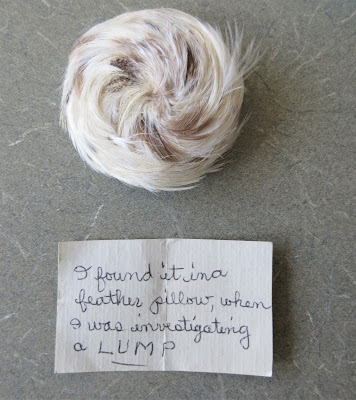 I found it in a
feather pillow, when
I was investigating
a LUMP